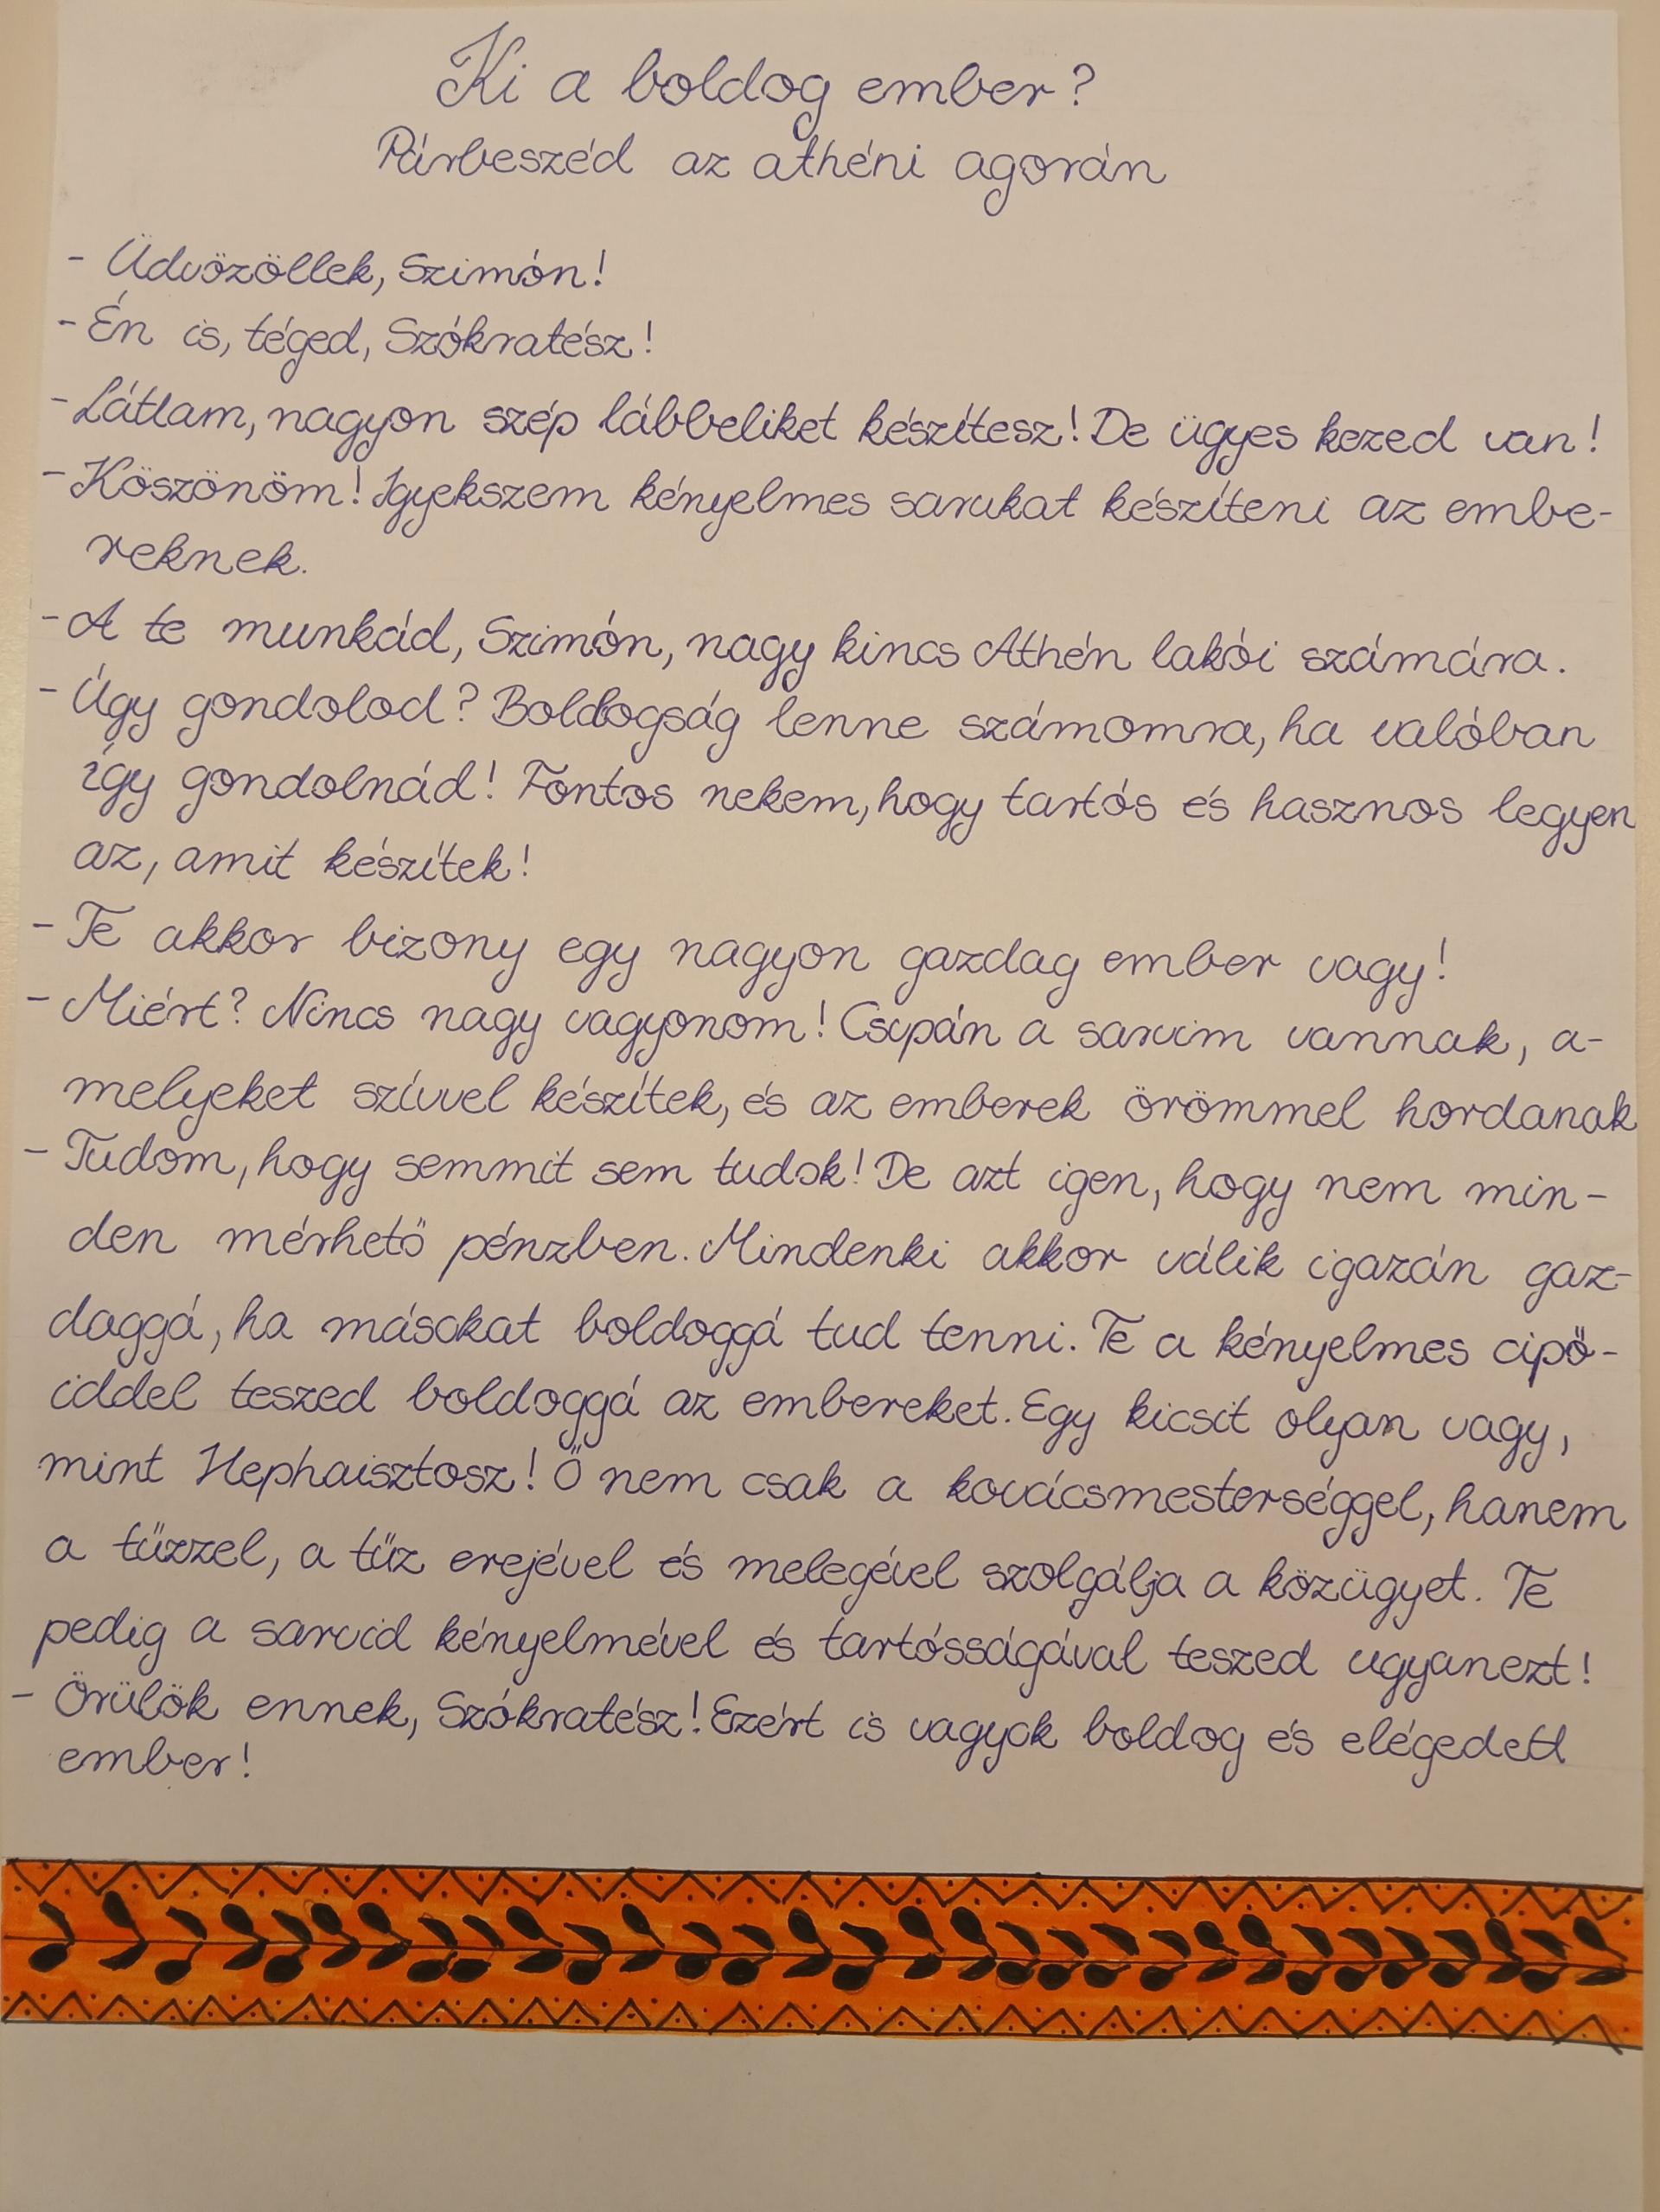 Ki a boldog ember?
Párbeszéd az athéni agorán
- Üdvözöllek, Szimón!
- Én is, téged, Szókratész!
- Láttam, nagyon szép lábbeliket készítesz! De ügyes kezed van!
- Köszönöm! Igyekszem kényelmes sarukat készíteni az embe-
reknek.
- A te munkád, Szimón, nagy kincs Athén lakói számára.
- Úgy gondolod? Boldogság lenne számomra, ha valóban
így gondolnád! Fontos nekem, hogy tartós és hasznos legyen
az, amit készítek!
- Te akkor bizony egy nagyon gazdag ember vagy!
- Miért? Nincs nagy vagyonom! Csupán a saruim vannak, a-
melyeket szívvel készítek, és az emberek örömmel hordanak
- Tudom, hogy semmit sem tudok! De azt igen, hogy nem min-
den mérhető pénzben. Mindenki akkor válik igazán gaz-
daggá, ha másokat boldoggá tud tenni. Te a kényelmes cipő-
iddel teszed boldoggá az embereket. Egy kicsit olyan vagy,
mint Hephaisztosz! Ő nem csak a kovácsmesterséggel, hanem
a tűzzel, a tűz erejével és melegével szolgálja a közügyet. Te
pedig a saruid kényelmével és tartósságával teszed ugyanezt!
- Örülök ennek, Szókratész! Ezért is vagyok boldog és elégedett
ember!